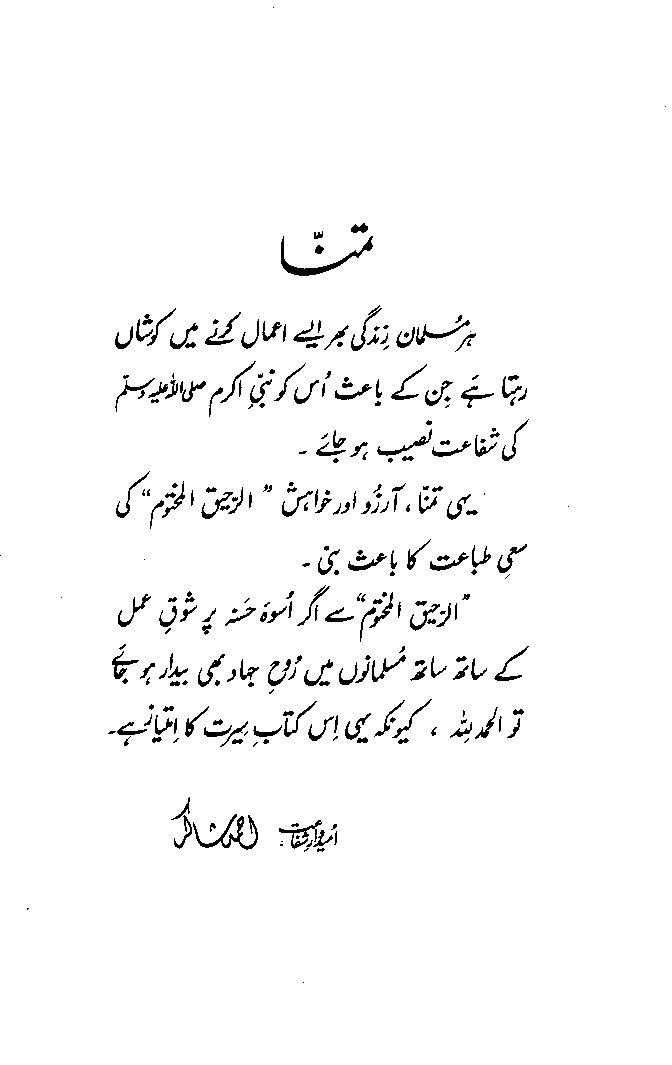 تمنّا
ہر مُسلمان زِندگی بھر ایسے اعمال کرنے میں کوشاں
رہتا ہَے جِن کے باعث اُس کو نبیِ اکرم صلی اللہ علیہ وسلم
کی شفاعت نصیب ہو جائے ۔
یہی تمنّا، آرزُو اور خواہش ”الرّحیق المختوم“ کی
سعیِ طباعت کا باعث بنی ۔
”الرّحیق المختوم“ سے اگر اُسوۂ حَسنہ پر شوقِ عمل
کے ساتھ ساتھ مُسلمانوں میں رُوحِ جہاد بھی بیدار ہو جائے
تو الحمدللہ ، کیونکہ یہی اِس کتابِ سِیرت کا اِمتیاز ہے۔
اُمیدوارِ شفاعت: احمد شاکر